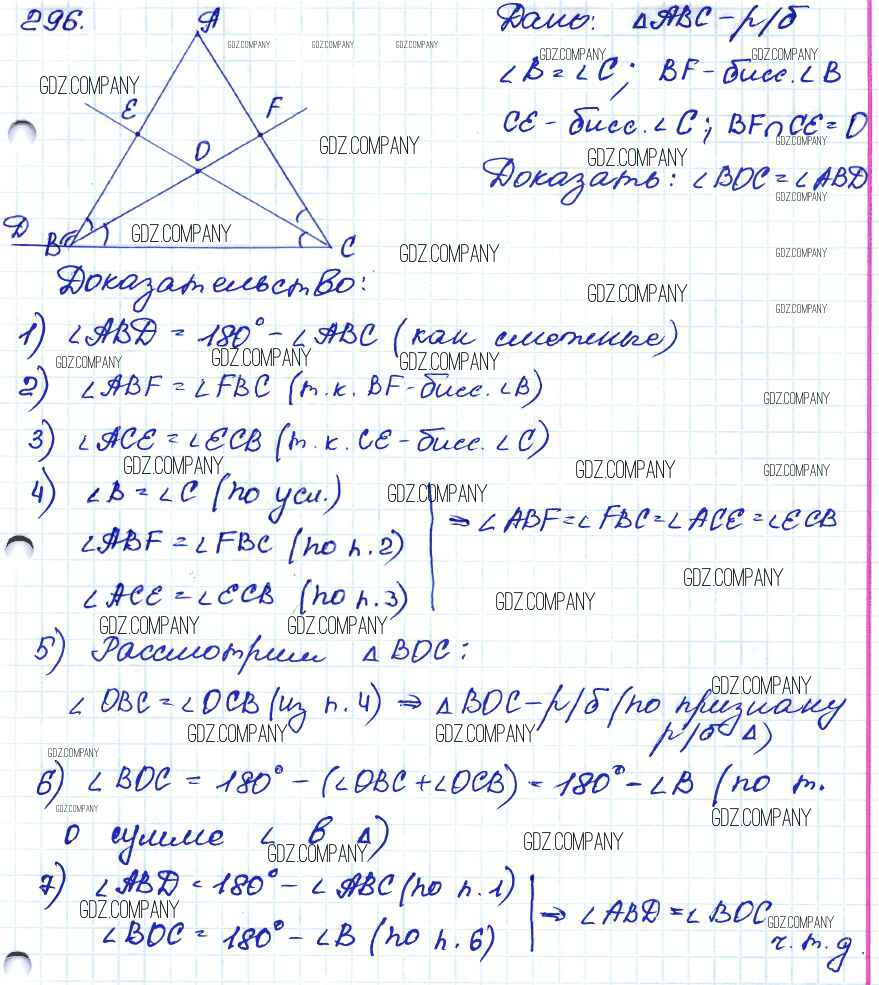 296.
A
E
F
O
Д
B
C
Дано: ΔABC – р/б
∠B = ∠C; BF – бисс. ∠B
CE – бисс. ∠C; BF∩CE = O
Доказать: ∠BOC = ∠ABD
Доказательство:
1) ∠ABD = 180° – ∠ABC (как смежные)
2) ∠ABF = ∠FBC (т.к. BF – бисс. ∠B)
3) ∠ACE = ∠ECB (т.к. CE – бисс. ∠C)
4) ∠B = ∠C (по усл.)
∠ABF = ∠FBC (по п.2)
∠ACE = ∠ECB (по п.3)
⇒ ∠ABF = ∠FBC = ∠ACE = ∠ECB
5) Рассмотрим Δ BOC:
∠OBC = ∠OCB (из п.4) ⇒ ΔBOC – р/б (по признаку
р/б Δ)
6) ∠BOC = 180° – (∠OBC + ∠OCB) = 180° – ∠B (по т.
о сумме ∠ в Δ)
7) ∠ABD = 180° – ∠ABC (по п.1)
∠BOC = 180° – ∠B (по п.6)
⇒ ∠ABD = ∠BOC
ч.т.д.
GDZ.COMPANY